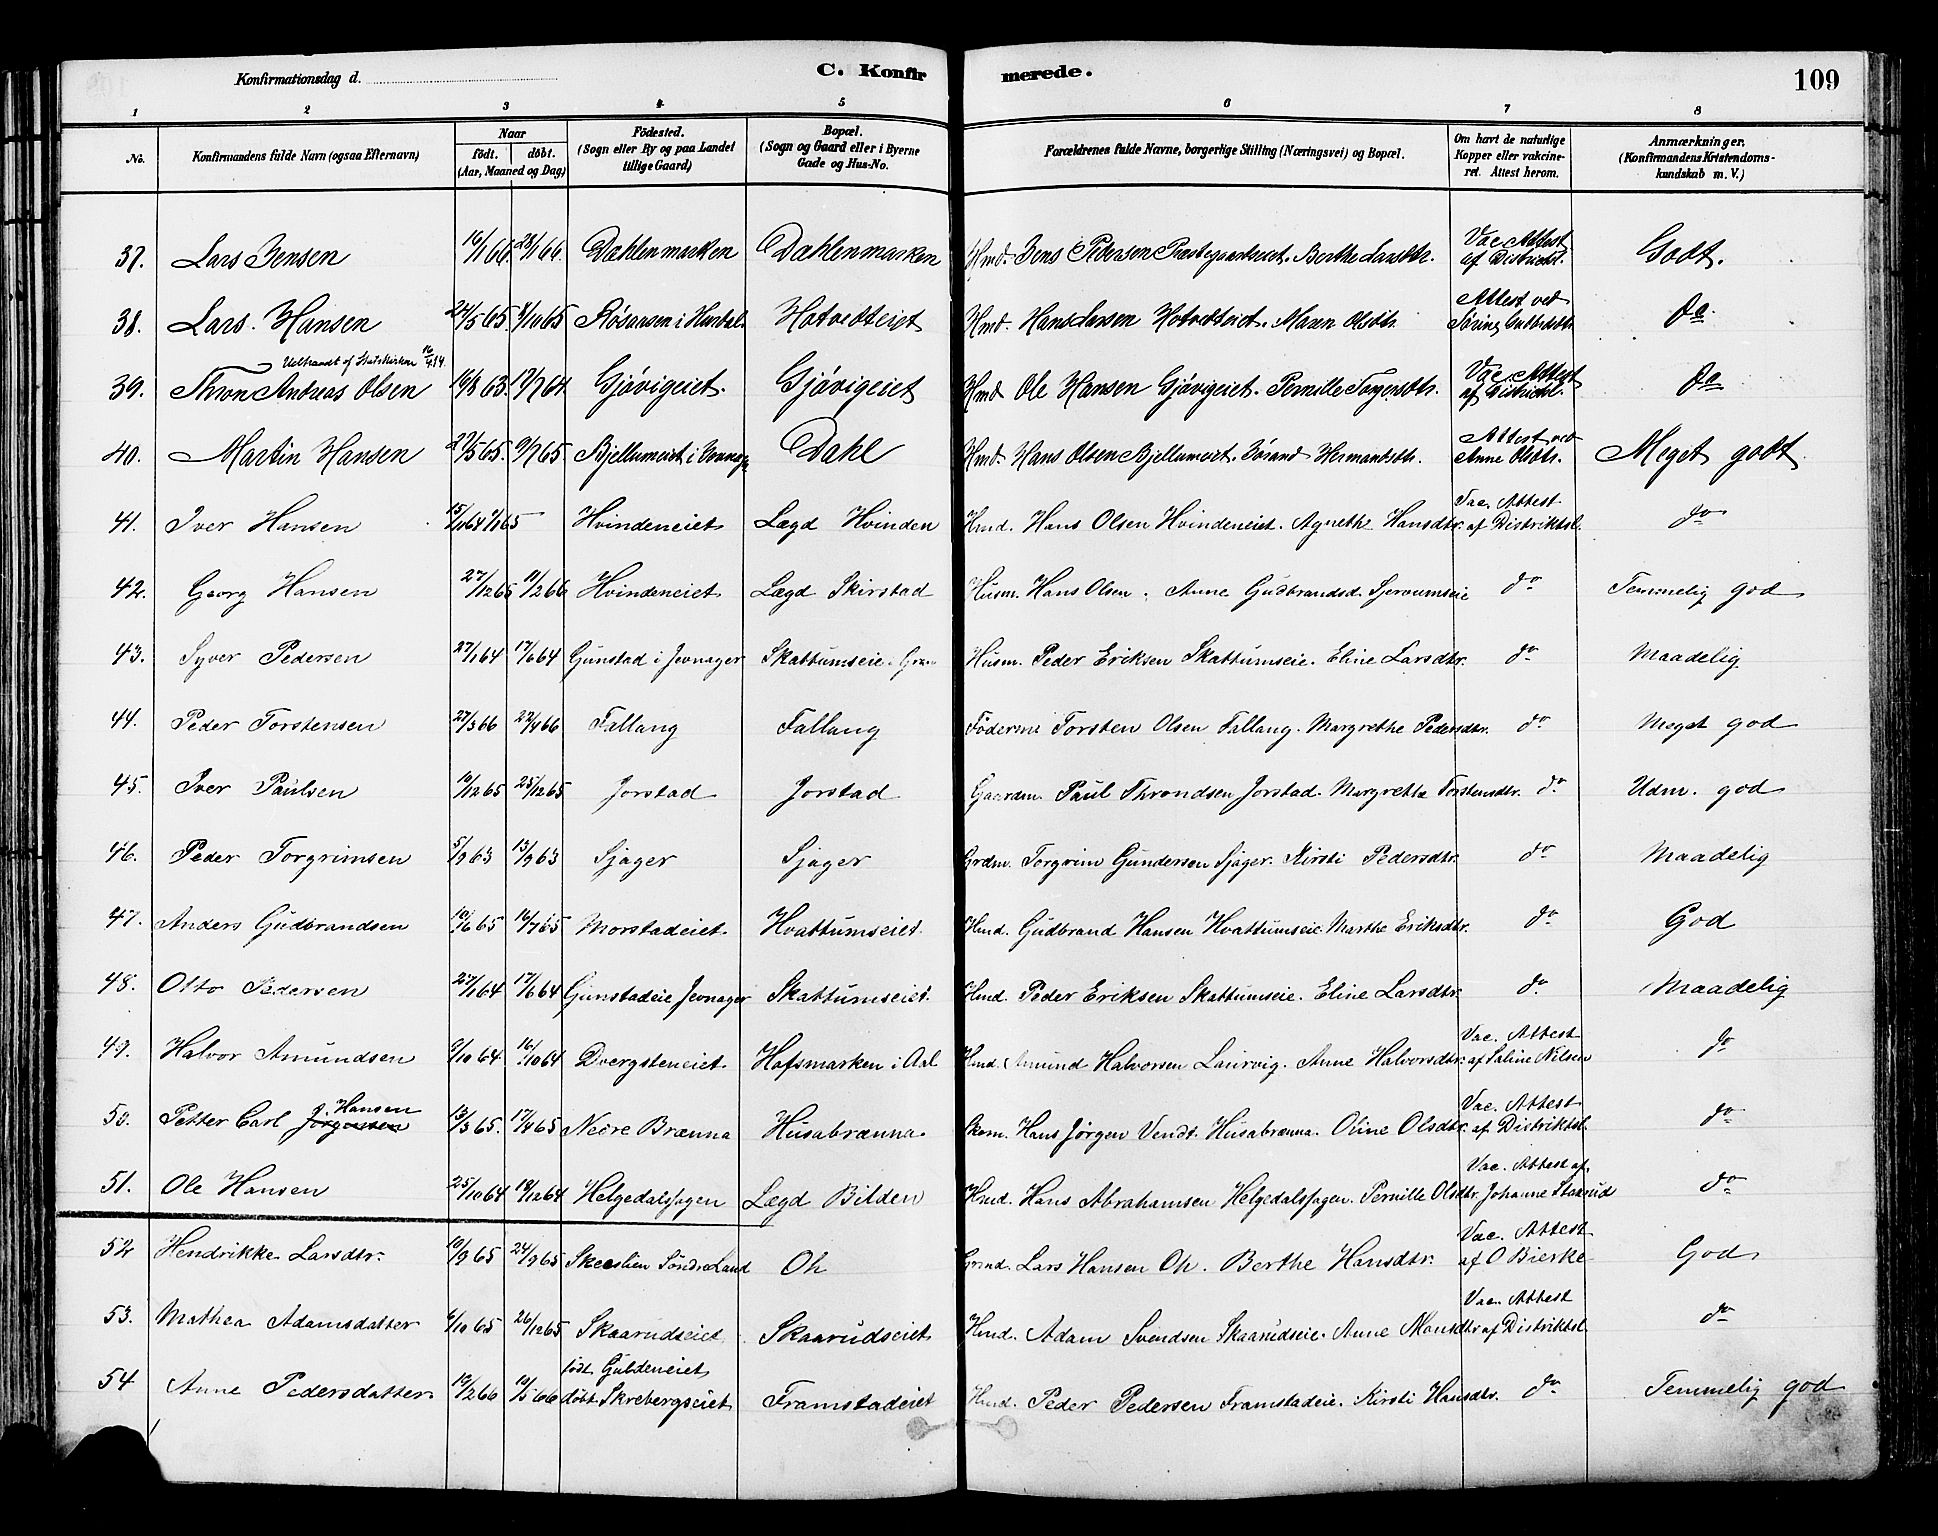 Konfirmationsdag d.
C. Konfir
merede.
109
1 2 3 4 5 6 7 8
No. Konfirmandens fulde Navn (ogsaa Efternavn) Naar födt. döbt. (Aar, Maaned og Dag) Födested. (Sogn eller By og paa Landet tillige Gaard) Bopæl. (Sogn og Gaard eller i Byerne Gade og Hus-No. Forældrenes fulde Navne, borgerlige Stilling (Næringsvei) og Bopæl. Om havt de naturlige Kopper eller vakcineret. Attest herom. Anmærkninger. (Konfirmandens Kristendomskundskab m. V.)
37. Lars Jensen 16/1 66. 28/1 66. Dæhlenmarken Dæhlenmarken Hmd. Jens Pedersen Præstegaardseiet. Berthe Larsdtr. Vac. Attest af Distriktsl. Godt.
38. Lars Hansen 24/5 65. 8/10 65 Rösaasen i Hurdal. Hotvedteiet Hmd. Hans Larsen Hotvedteiet. Maren Olsdtr. Attest ved do
Udtraadt af Statskirken
39. Thron Andreas Olsen 16/8 63. 17/7 64. Gjövigeiet. Gjövigeiet Hmd Ole Hansen Gjövigeiet. Pernille Torgersdtr. Vac. Attest af Distriktsl. do
40. Martin Hansen 27/5 65. 9/7 65. Bjellumeiet i Dahl Hmd. Hans Olsen Bjellumeiet. Jörand Hermandsdtr. Attest ved Anne Olsdtr. Meget godt
41. Iver Hansen 15/10 64 1/1 65 Hvindeneiet Lægd Hvinden Hmd. Hans Olsen Hvindeneiet. Agnethe Hansdtr. Vac. Attest af Distriktsl. do
42. Georg Hansen 27/12 65 11/2 66 Hvindeneiet Lægd Skirstad Husm. Hans Olsen. Anne Gudbrandsd. Sjervumseie do Temmelig god
43. Syver Pedersen 27/1 64 17/6 64 Gunstad i Jevnager Skattumseie. Gran Husm. Peder Eriksen Skattumseie. Eline Larsdtr. do Maadelig
44. Peder Torstensen 27/3 66 22/4 66 Fallang Fallang Torsten Olsen Fallang. Margrethe Pedersdtr. do Meget god
45. Iver Paulsen 10/12 65 25/12 65 Jorstad Jorstad Gaardm. Paul Throndsen Jorstad. Margrethe Torstensdtr. do Udm. god
46. Peder Torgrimsen 5/9 63 13/9 63 Sjager Sjager Grdm. Torgrim Gundersen Sjager. Kirsti Pedersdtr. do Maadelig
47. Anders Gudbrandsen 10/6 65 16/7 65 Morstadeiet. Hvattumseiet. Hmd. Gudbrand Hansen Hvattumseie. Marthe Eriksdtr. do God
48. Otto Pedersen 27/1 64 17/6 64 Gunstadeie Jevnager Skattumseiet. Hmd. Peder Eriksen Skattumseie. Eline Larsdtr. do Maadelig
49. Halvor Amundsen 9/10 64 16/10 64 Dvergsteneiet. Hofsmarken i Aal Hmd. Amund Halvorsen Laurvig. Anne Halvorsdtr. Vac. Attest af Saline Nilsen do
50. Petter Carl Jörgensen J. Hansen 13/3 65. 17/4 65 Nedre Brænna Husabrænna. Skom. Hans Jörgen Vendt. Husabrænna. Oline Olsdtr. Vac. Attest af Distriktsl. do
51. Ole Hansen 25/10 64 18/12 64 Helgedalshagen Lægd Bilden Hmd. Hans Abrahamsen Helgedalshagen. Pernille Olsdtr. Vac. Attest af. Johanne Staxrud do
52 Hendrikke Larsdtr. 10/9 65 24/9 65 Skeeslien Söndr. Land Oh Grmd. Lars Hansen Oh. Berthe Hansdtr. Vac. Attest af O Bierke God
53. Mathea Adamsdatter 6/10 65 26/12 65 Skaarudseiet Skaarudseiet Hmd. Adam Svendsen Skaarudseie. Anne Monsdtr. Vac. Attest af Distriktsl. do
54 Anne Pedersdatter. 19/2 66 10/5 66 födt Guldeneiet döbt Skrebergseiet Framstadeiet Hmd. Peder Pedersen Framstadeie. Kirsti Hansdtr. do Temmelig god